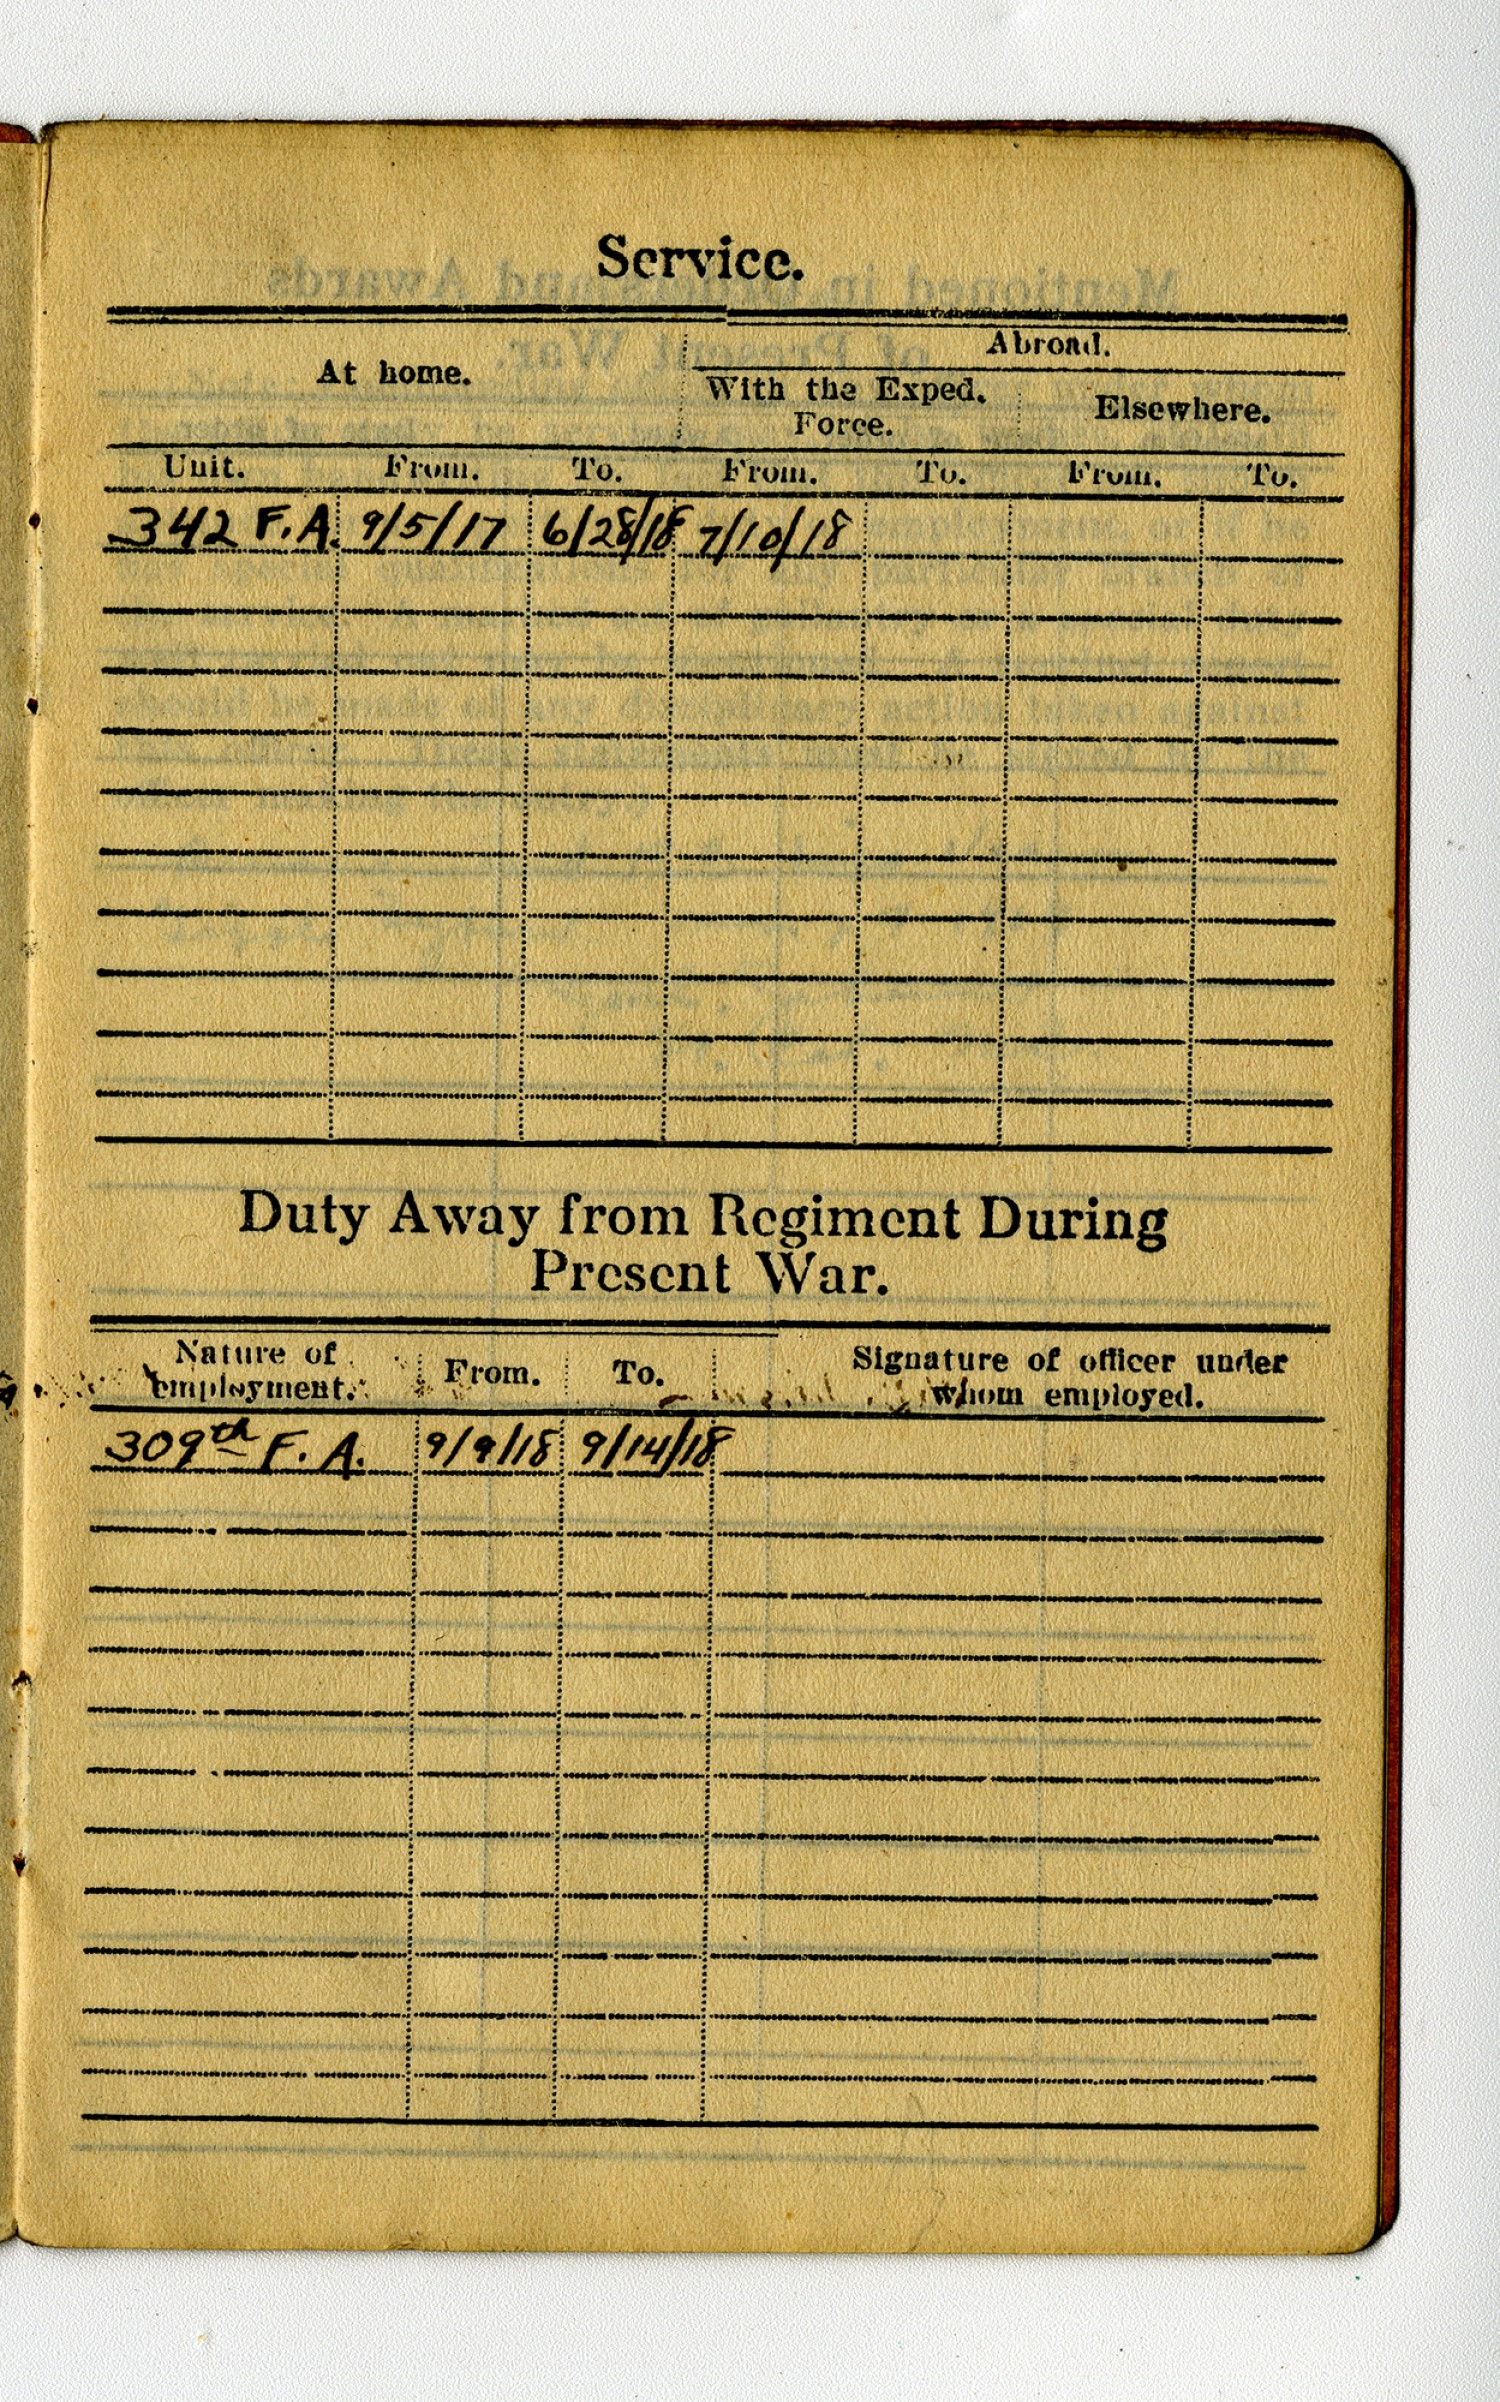 Service.
At home.
Abroad.
With the Exped.
Force.
Elsewhere.
Unit. From. To. From. To. From. To.
342 F.A. 9/5/17 6/28/18 7/10/18
Duty Away from Regiment During
Present War.
Nature of
employment.
From. To.
Signature of officer under
whom employed.
309th F. A. 9/9/18 9/14/18